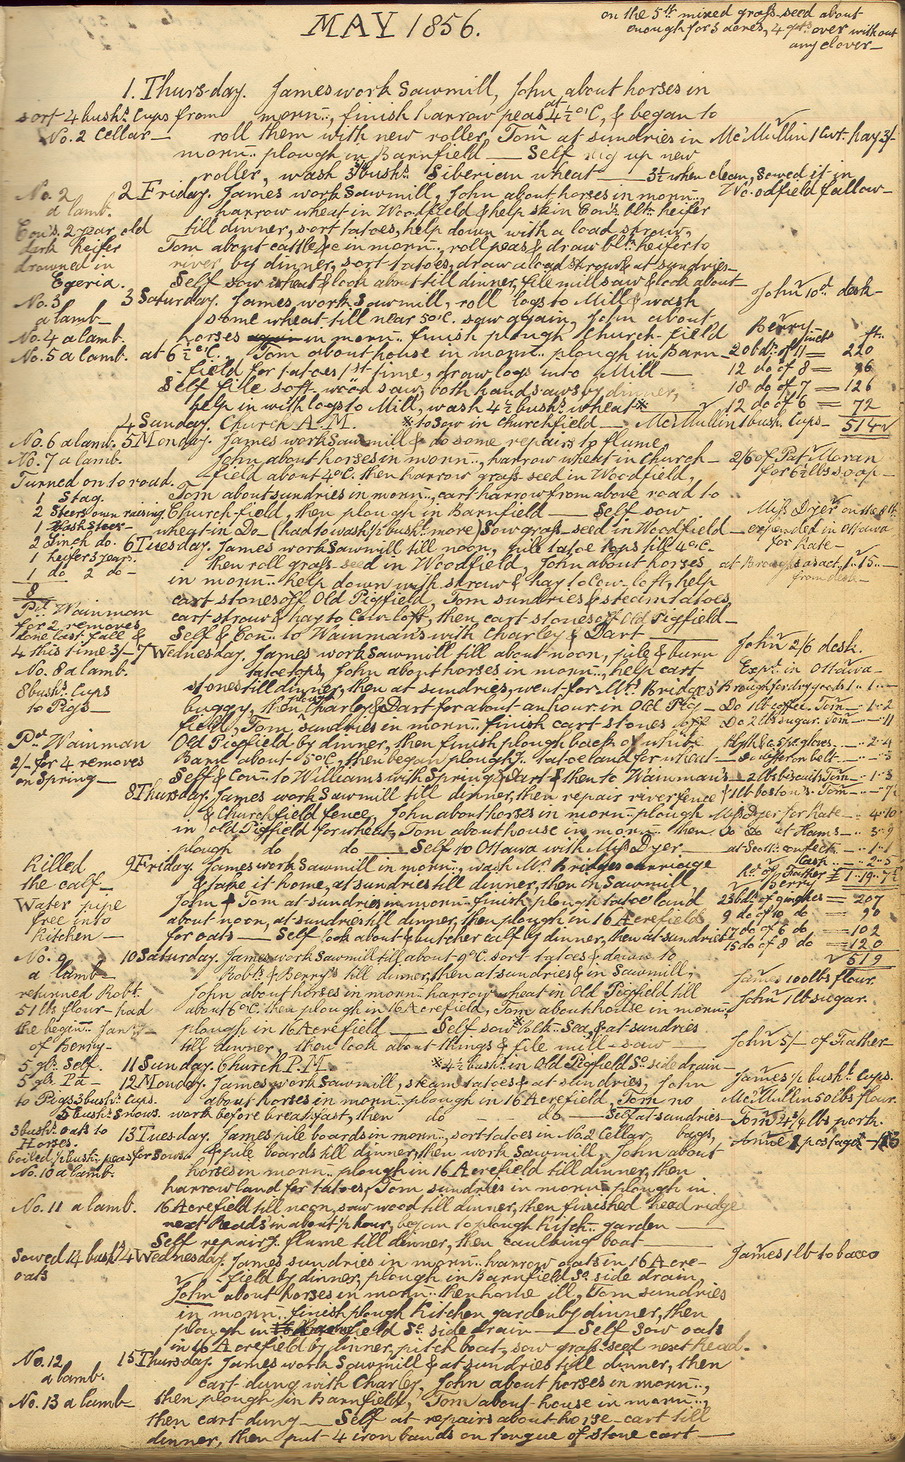 MAY 1856.
on the 5th mixed grass-seed about
enough for 3 acres, 4 qts over without
any clover—
1. Thursday. James work Sawmill, John about horses in
sort 4 bushs. Cups from morn:., finish harrow peas at 4½ o'C, & began to
No. 2 Cellar— roll them with new roller, Tom at sundries in Mc Mullin 1 Cwt. hay 3/-
morn:. plough in Barnfield — Self rig up new
roller, wash bushs. Siberian wheat — 3½ when clean, Sowed it in
No. 2 2 Friday. James work Sawmill, John about horses in morn:., Woodfield fallow—
a lamb. harrow wheat in Woodfield & help skin Con's. blk. heifer
Con's. 2 year old till dinner, sort tatoes, help down with a load straw,
dark heifer Tom about cattle &c in morn:., roll peas & draw blk. heifer to
drowned in river by dinner, sort tatoes, draw a load straw & at sundries—
Egeria. Self sow wheat & look about till dinner, file mill saw & look about
No. 3 3 Saturday. James, work Sawmill, roll logs to Mill & wash John 10d. desk—
a lamb— some wheat till near 5 o'C. saw again, John about
No. 4 a lamb. horses in morn:. finish plough Church-field Berry inch ft.
No. 5 a lamb. at 6½ o'C. Tom about house in morn:. plough in Barn— 20 bds. of 11 = 220
-field for tatoes 1st time, draw logs into Mill— 12 do of 8 = 96
Self file soft-wood saw, both hand saws by dinner, 18 do of 7 = 126
help in with logs to Mill, wash 4½ bushs. wheat* 12 do of 6 = 72
4 Sunday. Church A.M. *to Sow in Churchfield— Mc Mullin 1 bush. Cups— 514
No. 6 a lamb. 5 Monday. James work Sawmill & do some repairs to flume,
No. 7 a lamb. John about horses in morn:., harrow wheat in Church— 2/6 of Pat. Moran
Turned on to road. -field about 4 o'C. then harrow grass-seed in Woodfield, for 6½ lbs soap—
1 Stag. Tom about sundries in morn:., cart harrow from above road to
2 Steers own raising Churchfield, then plough in Barnfield — Self sow Miss Dyer on the 8th
1 Steer— wheat in Do— (had to wash ½ bush. more) Sow grass-seed in Woodfield — expended in Ottawa
2 Finch do. 6 Tuesday. James work Sawmill till noon, pile tatoe tops till 4 o'C. for Kate—
1 heifer 3 years. then roll grass-seed in Woodfield, John about horses at Brough's 1..15..—
1 do 2 do— in morn:. help down with straw & hay to Cow-loft, help from desk—
8 cart stones off Old Pigfield, Tom sundries & steam tatoes,
Pat. Wainman cart straw & hay to Cow loft, then, cart stones off Old Pigfield—
for 2 removes Self & Con:. to Wainman's with Charley & Dart
done last fall & 
4 this time 3/- 7 Wednesday. James work Sawmill till about noon, pile & burn John 2/6 desk.
No. 8 a lamb. tatoe tops, John about horses in morn:., help cart Exps. in Ottawa—
8 bushs. Cups stones till dinner, then at sundries, went for Mr. Bridges' Brough for dry goods 1..1..—
to Pigs— buggy, then Charley & Dart for about an hour in Old Pig— Do 1 lb coffee. Tom—..1..2
field, Tom sundries in morn:. finish cart stones off Do 2 lbs sugar. Tom—..11
Pat. Wainman Old Pigfield by dinner, then finish plough back of white gloves..2..4
2/- for 4 removes Barn about 5 o'C, then began plough tatoe land for wheat— Do belt..
on Spring— Self & Con:. to Williams with Spring & Dart & then to Wainman's— 2 lbs biscuits Tom—..1..3
8 Thursday. James work Sawmill till dinner, then repair river fence
& Churchfield fence, John about horses in morn:. plough Miss Dyer for Kate—..4..10
in old Pigfield for wheat, Tom about house in morn:. then Do Do at Hams—..3..9
plough do do — Self to Ottawa with Miss Dyer— at Scott:. confect:. ..1..1
Killed 9 Friday. James work Sawmill in morn:., wash Mr. Bridges carriage Cash..2..5
the calf— & take it home, at sundries till dinner, then in Sawmill, Rd. of Father £1..19..7½
Water pipe John & Tom at sundries in morn:. finish plough tatoe land Berry
free into about noon, at sundries till dinner, then plough in 16 Acrefield 23 bds. of 9 inches = 207
Kitchen— for oats — Self look about & butcher calf by dinner, then at sundries 9 do of 10 do = 90
17 do of 6 do = 102
15 do of 8 do = 120
No. 9 10 Saturday. James work Sawmill till about 9 o'C. sort tatoes & draw to 519
a lamb Robt's & Berry's till dinner, then at sundries & in Sawmill, James 100 lbs flour.
returned Robt. John about horses in morn:. harrow wheat in Old Pigfield till John 1 lb sugar.
51 lbs flour—had about 6 o'C. then plough in 16 Acrefield, Tom about house in morn:.
the begin:. Jany.— plough in 16 Acrefield — Self sow & at sundries
of Berry— till dinner, then look about things & file mill-saw— John 5/- of Father
5 gls. Self. 11 Sunday. Church P.M. *4½ bush:. in Old Pigfield So. side drain—
5 gls. Pa— 12 Monday. James work Sawmill, steam tatoes & at sundries, John James ½ bush. Cups.
to Pigs 3 bush. Cups. about horses in morn:. plough in 16 Acrefield, Tom no Mc Mullin 50 lbs flour.
5 bush. Snows. work before breakfast, then do — do— Self at sundries— Tom 24¾ lbs pork.
3 bush. oats to 13 Tuesday. James pile boards in morn:., sort tatoes in No. 2 Cellar bags,
Horses. & pile boards till dinner, then work Sawmill, John about
boiled ½ bush. peas for Sows
No. 10 a lamb. horses in morn:. plough in 16 Acrefield till dinner, then
harrow land for tatoes, Tom sundries in morn:. plough in
No. 11 a lamb. 16 Acrefield till noon, saw wood till dinner, then finished head ridge
next Roads in about ½ hour, began to plough Kitch:. garden—
Self repair flume till dinner, then caulking boat—
Sowed 14 bushs. 14 Wednesday. James sundries in morn:. harrow oats in 16 Acre— James 1 lb tobacco
oats -field by dinner, plough in Barnfield So. side drain,
John about horses in morn:. then home ill, Tom sundries
in morn:. finish plough Kitchen garden by dinner, then
plough in field So. side drain — Self sow oats
in 16 Acrefield by dinner, pitch boat, sow grass-seed next Head—
No. 12 15 Thursday. James work Sawmill & at sundries till dinner, then
a lamb. cart dung with Charley, John about horses in morn:.,
No. 13 a lamb— then plough in Barnfield, Tom about house in morn:.,
then cart dung — Self at repairs about horse-cart till
dinner, then put 4 iron bands on tongue of stone cart—